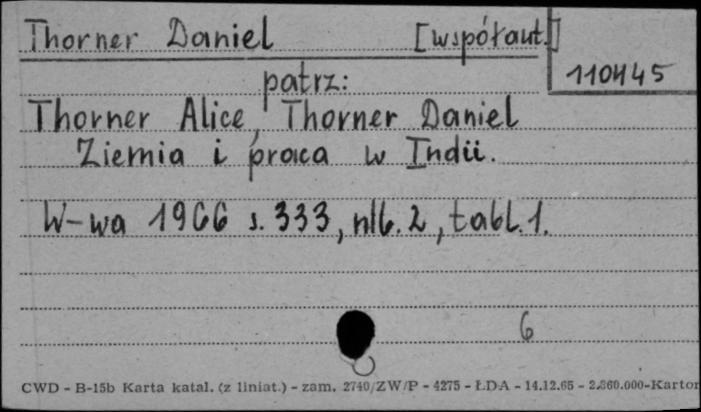 Thorner Daniel [współaut.]
110445
patrz:
Thorner Alice, Thorner Daniel
Ziemia i praca w Indii.
W-wa 1966 s. 333, nlb. 2, tabl. 1.
6
CWD - B-15b Karta katal. (z liniat.) - zam. 2740/ZW/P - 4275 - ŁDA - 14.12.65 - 2.860.000-Karton